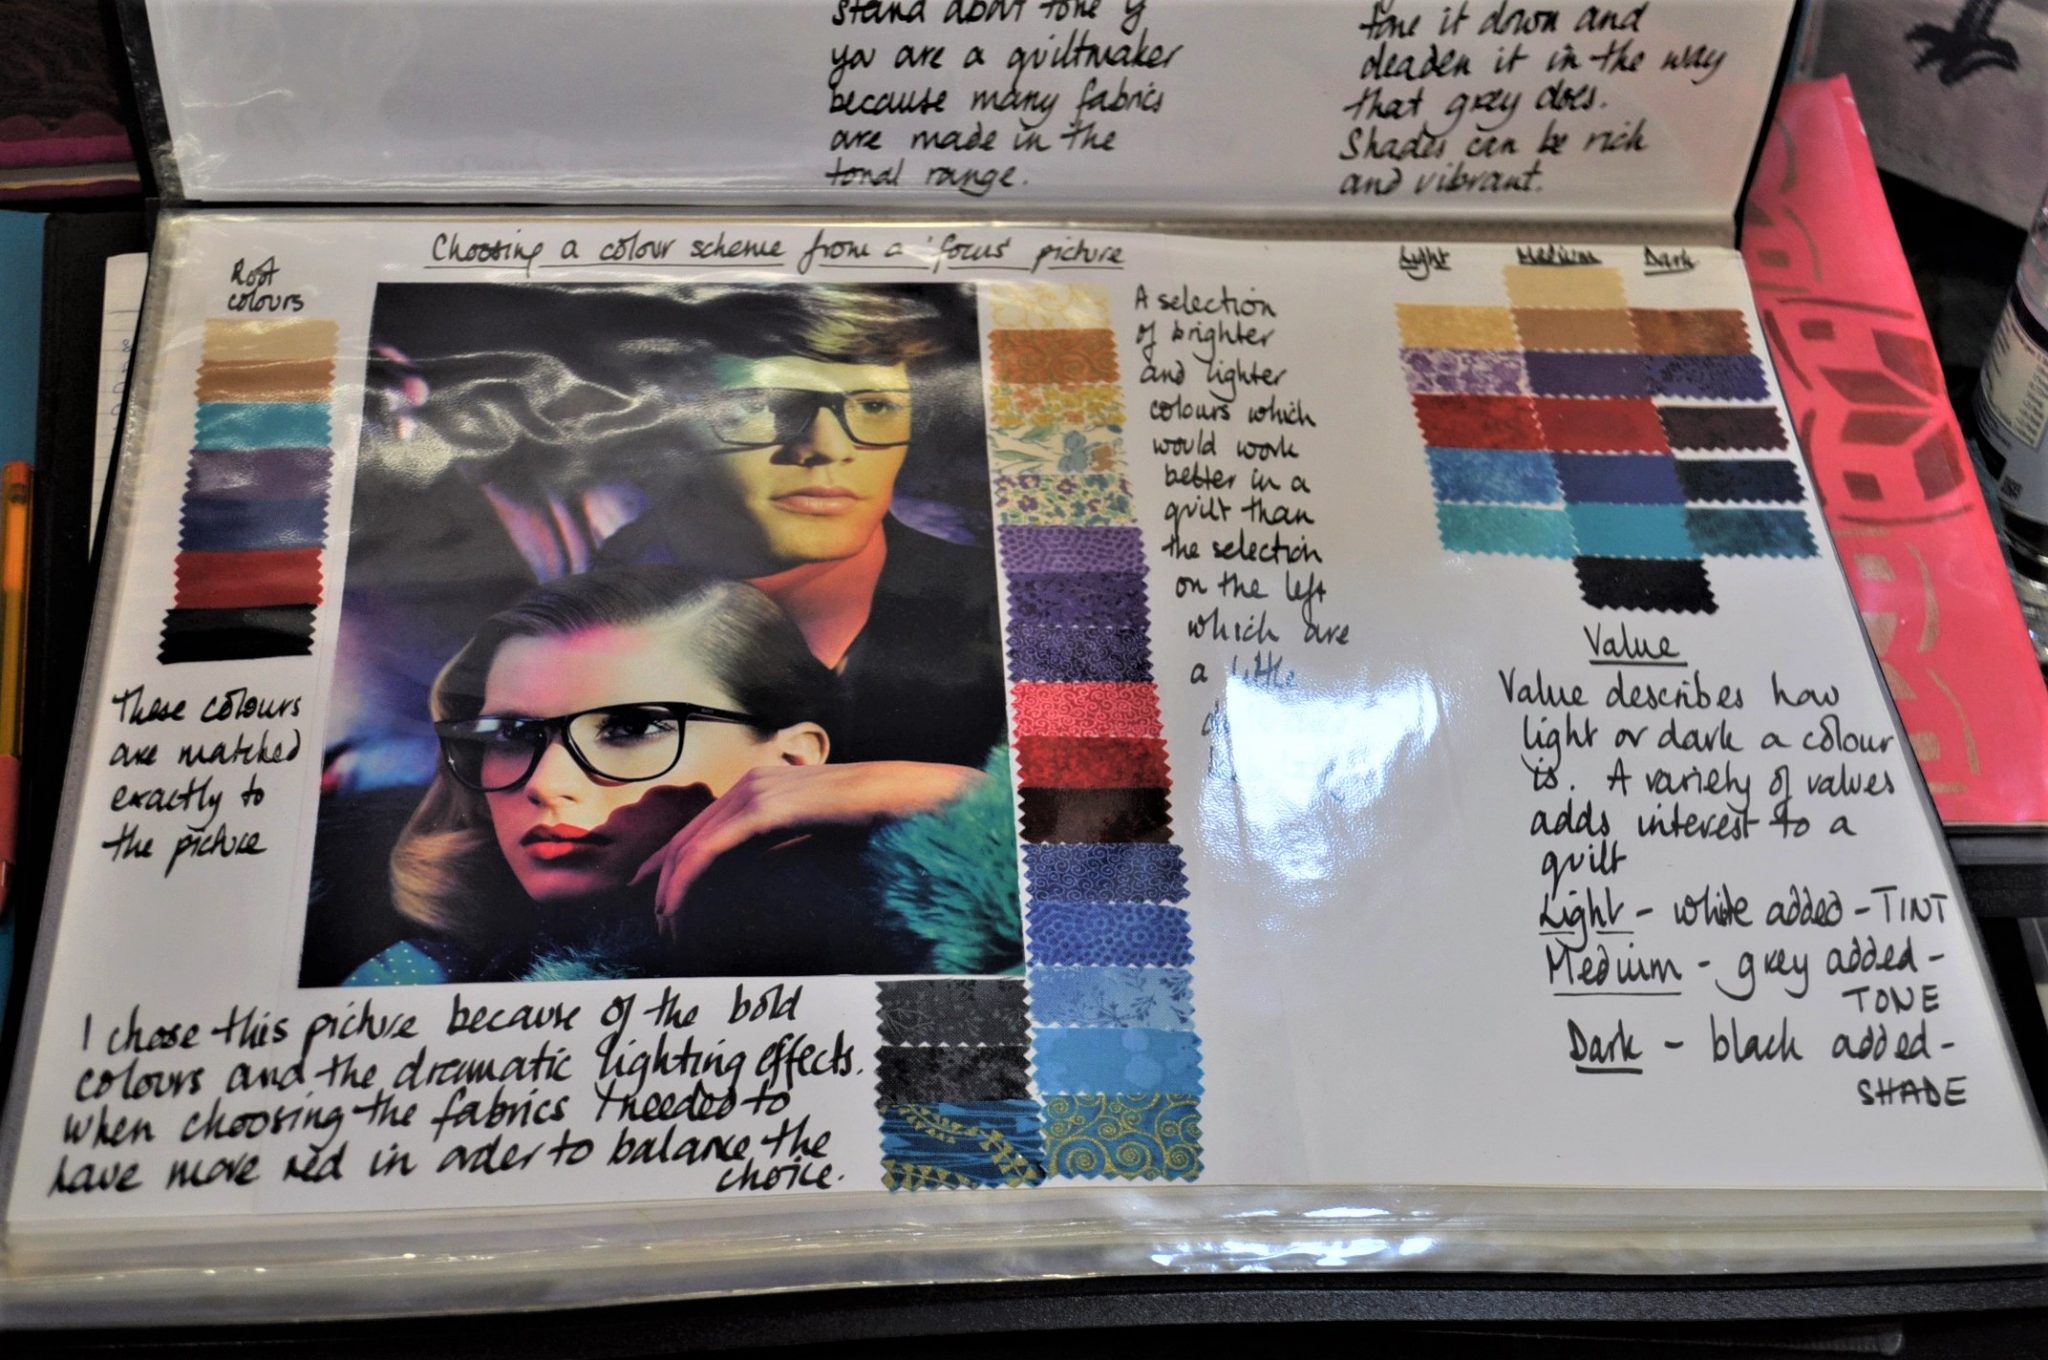 stand about tone if
you are a quiltmaker
because many fabrics
are made in the
tonal range.
tone it down and
deaden it in the way
that grey does.
Shades can be rich
and vibrant.
Choosing a colour scheme from a 'focus' picture
Root
colours
These colours
are matched
exactly to
the picture
A selection
of brighter
and lighter
colours which
would work
better in a
quilt than
the selection
on the left
which are
a little
Light Medium Dark
Value
Value describes how
light or dark a colour
is. A variety of values
adds interest to a
quilt
Light - white added - TINT
Medium - grey added -
TONE
Dark - black added -
SHADE
I chose this picture because of the bold
colours and the dramatic lighting effects.
When choosing the fabrics I needed to
have more red in order to balance the
choice.